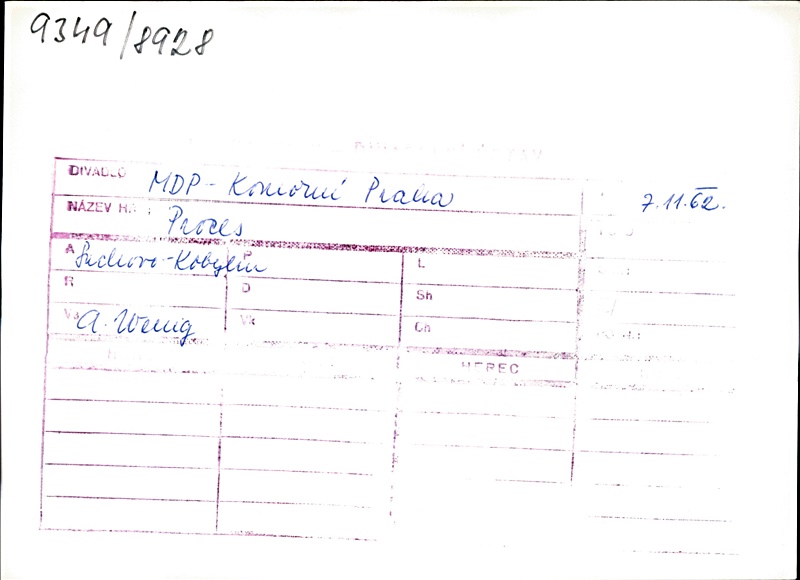 9349/8928
DIVADLO MDP - Komorní Praha 7.11.62.
NÁZEV H. Proces
A Suchovo-Kobylin L
R D Sh
Vs A. Wenig Vk Ch
HEREC